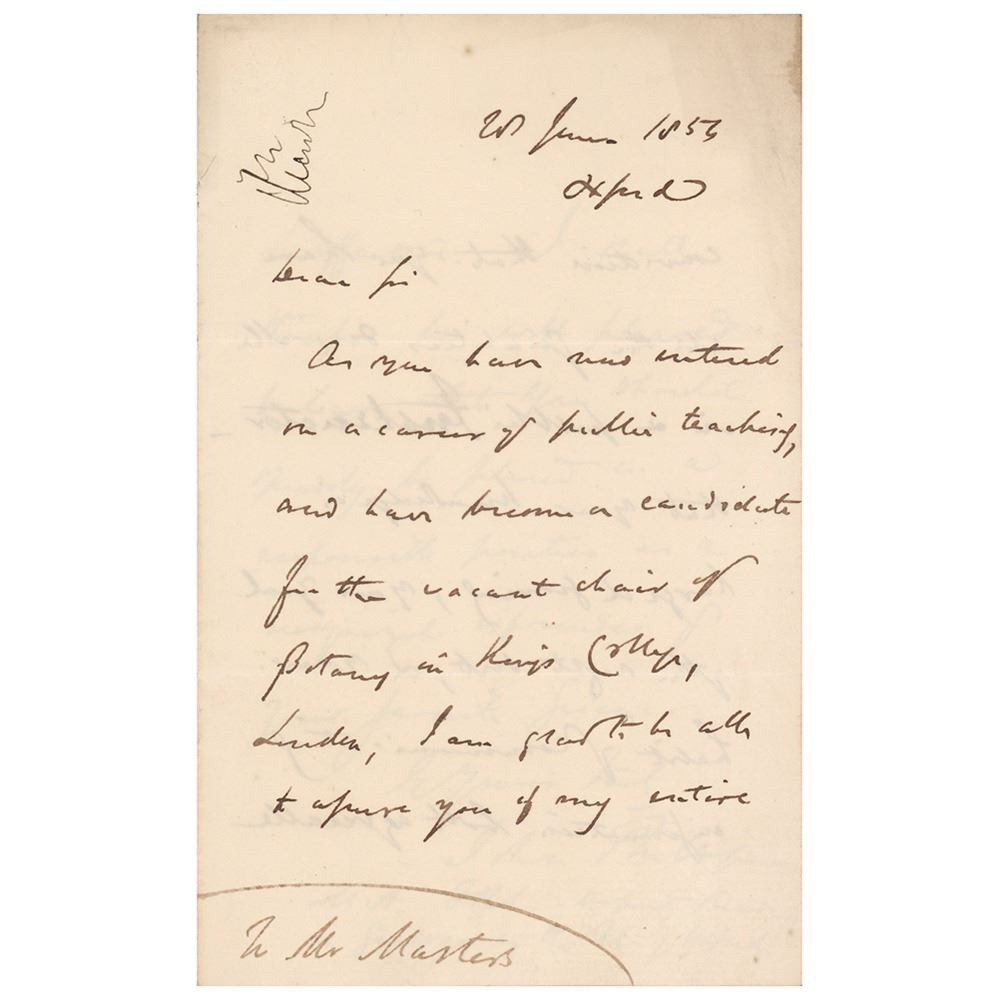 28 June 1853
Oxford
Dear Sir
As you have now entered
on a career of public teaching,
and have become a candidate
for the vacant chair of
Botany in Kings College,
London, I am glad to be able
to assure you of my entire
To Mr Masters